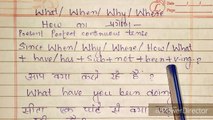 What/When/Why/Where
How का प्रयोग
Present Perfect continuous tense
Since When/Why/Where/How/What
+ have/has + Sub + not + been + v-ing?
आप क्या करते रहे हैं ?
What have you been doing
सीता एक घंटे से क्या
PowerDirector